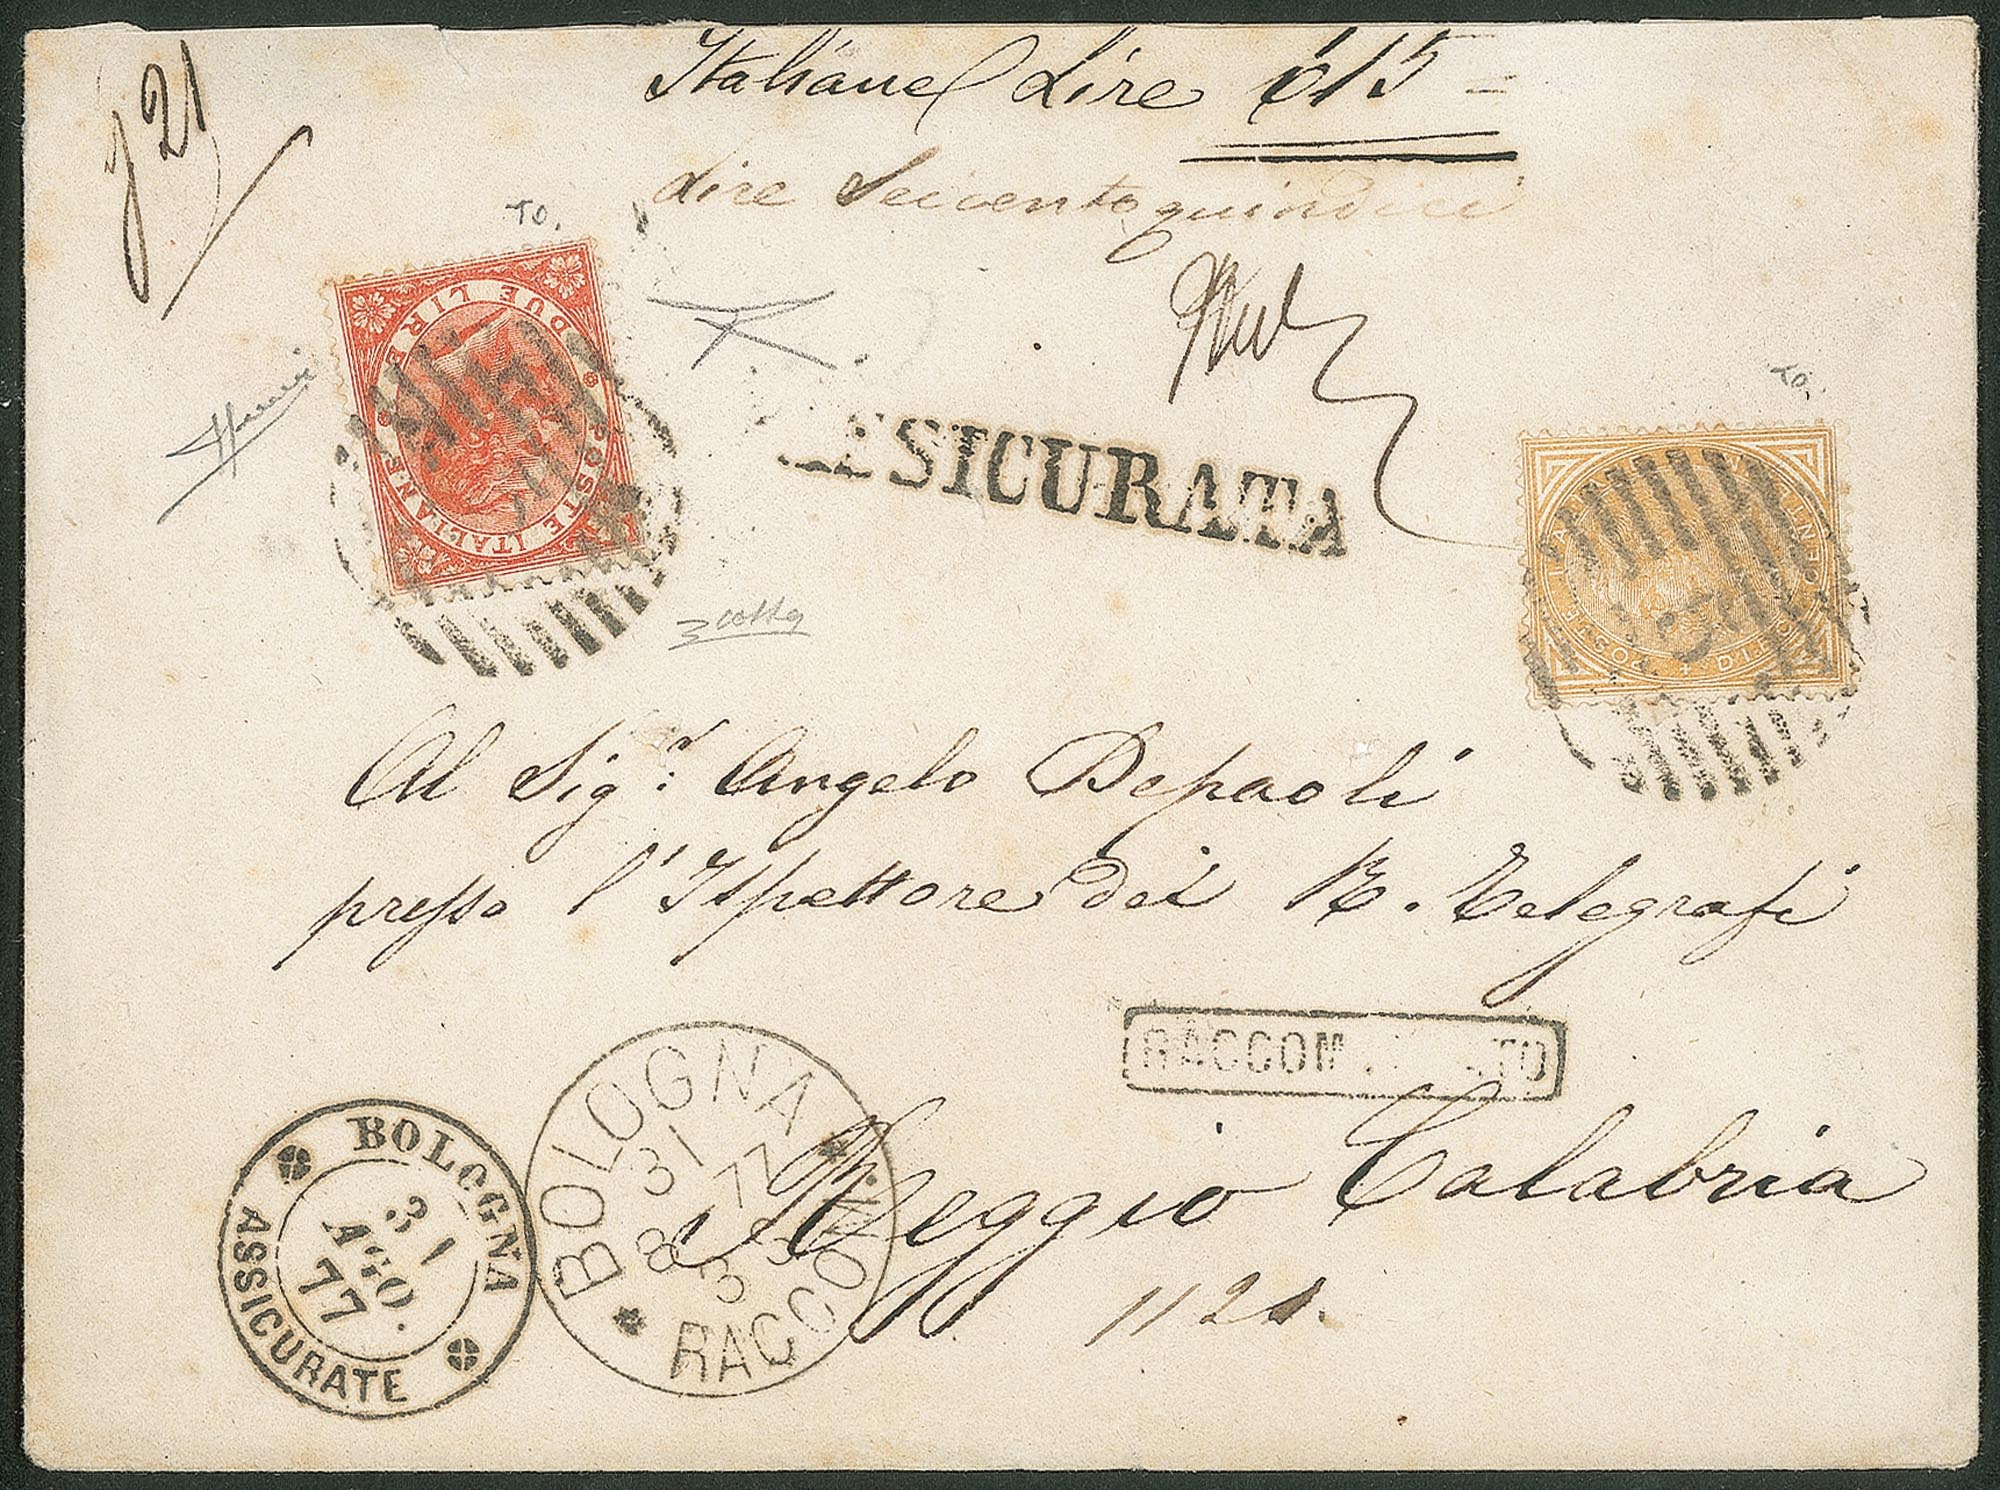 Italiane Lire 615 =
Lire Seicentoquindici
721
TO.
DUE LIRE
POSTE ITALIANE
SICURATA
TO.
Al Sig.r Angelo Depaoli
presso l'Ispettore dei R. Telegrafi
RACCOM
Reggio Calabria
1121.
BOLOGNA
31 AGO. 77
ASSICURATE
BOLOGNA
31
8 77
3 S
RACCOM.